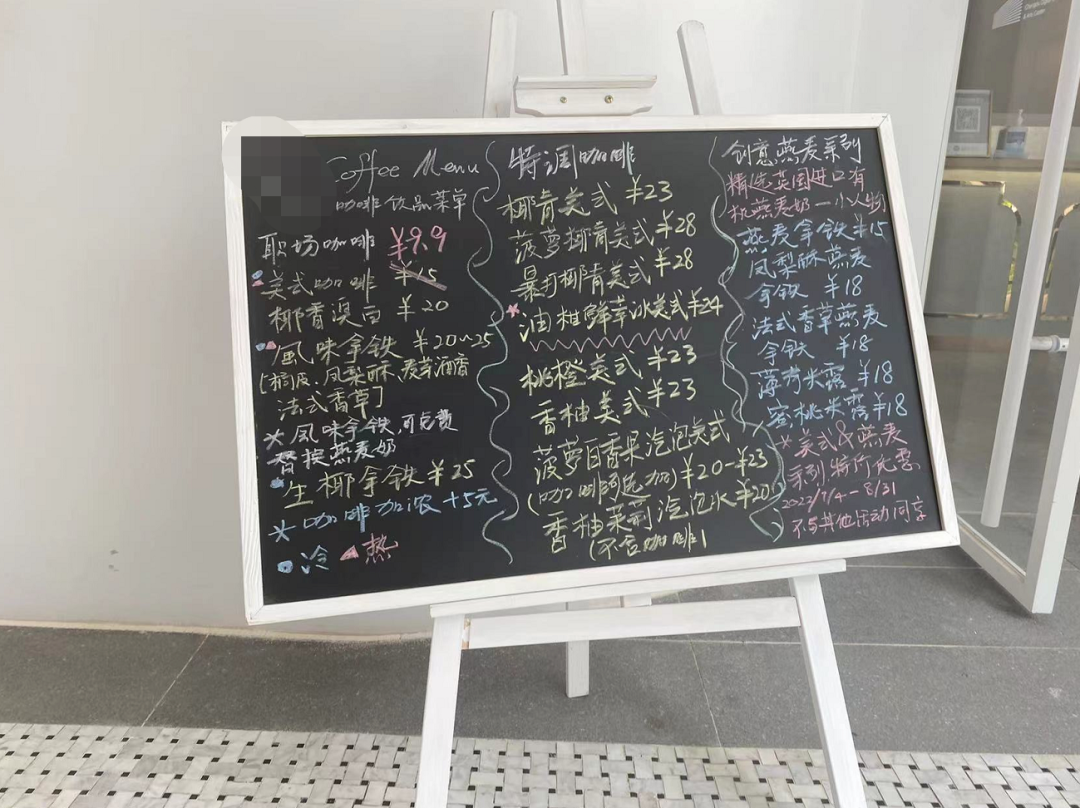 Coffee Menu
咖啡饮品菜单
职场咖啡 ¥9.9
美式咖啡 ¥15
椰香澳白 ¥20
風味拿铁 ¥20~25
凤梨酥、麦芽酒香
法式香草]
*凤味拿铁,可免费
替换燕麦奶
生椰拿铁¥25
*咖啡加浓 +5元
冷 热
特调咖啡
椰青美式 ¥23
菠萝椰青美式¥28
暴打椰青美式¥28
*油柑鲜萃冰美式¥24
桃橙美式 ¥23
香柚美式¥23
菠萝百香果汽泡美式
(咖啡可选加)¥20-¥23
香柚茉莉汽泡水¥20
(不含咖啡)
创意燕麦系列
精选英国进口有
机燕麦奶一小人物
燕麦拿铁¥15
凤梨酥燕麦
拿铁 ¥18
法式香草燕麦
拿铁 ¥18
薄荷米露 ¥18
蜜桃米露¥18
*美式&燕麦
系列特价优惠
2022/7/4-8/31
不与其他活动同享